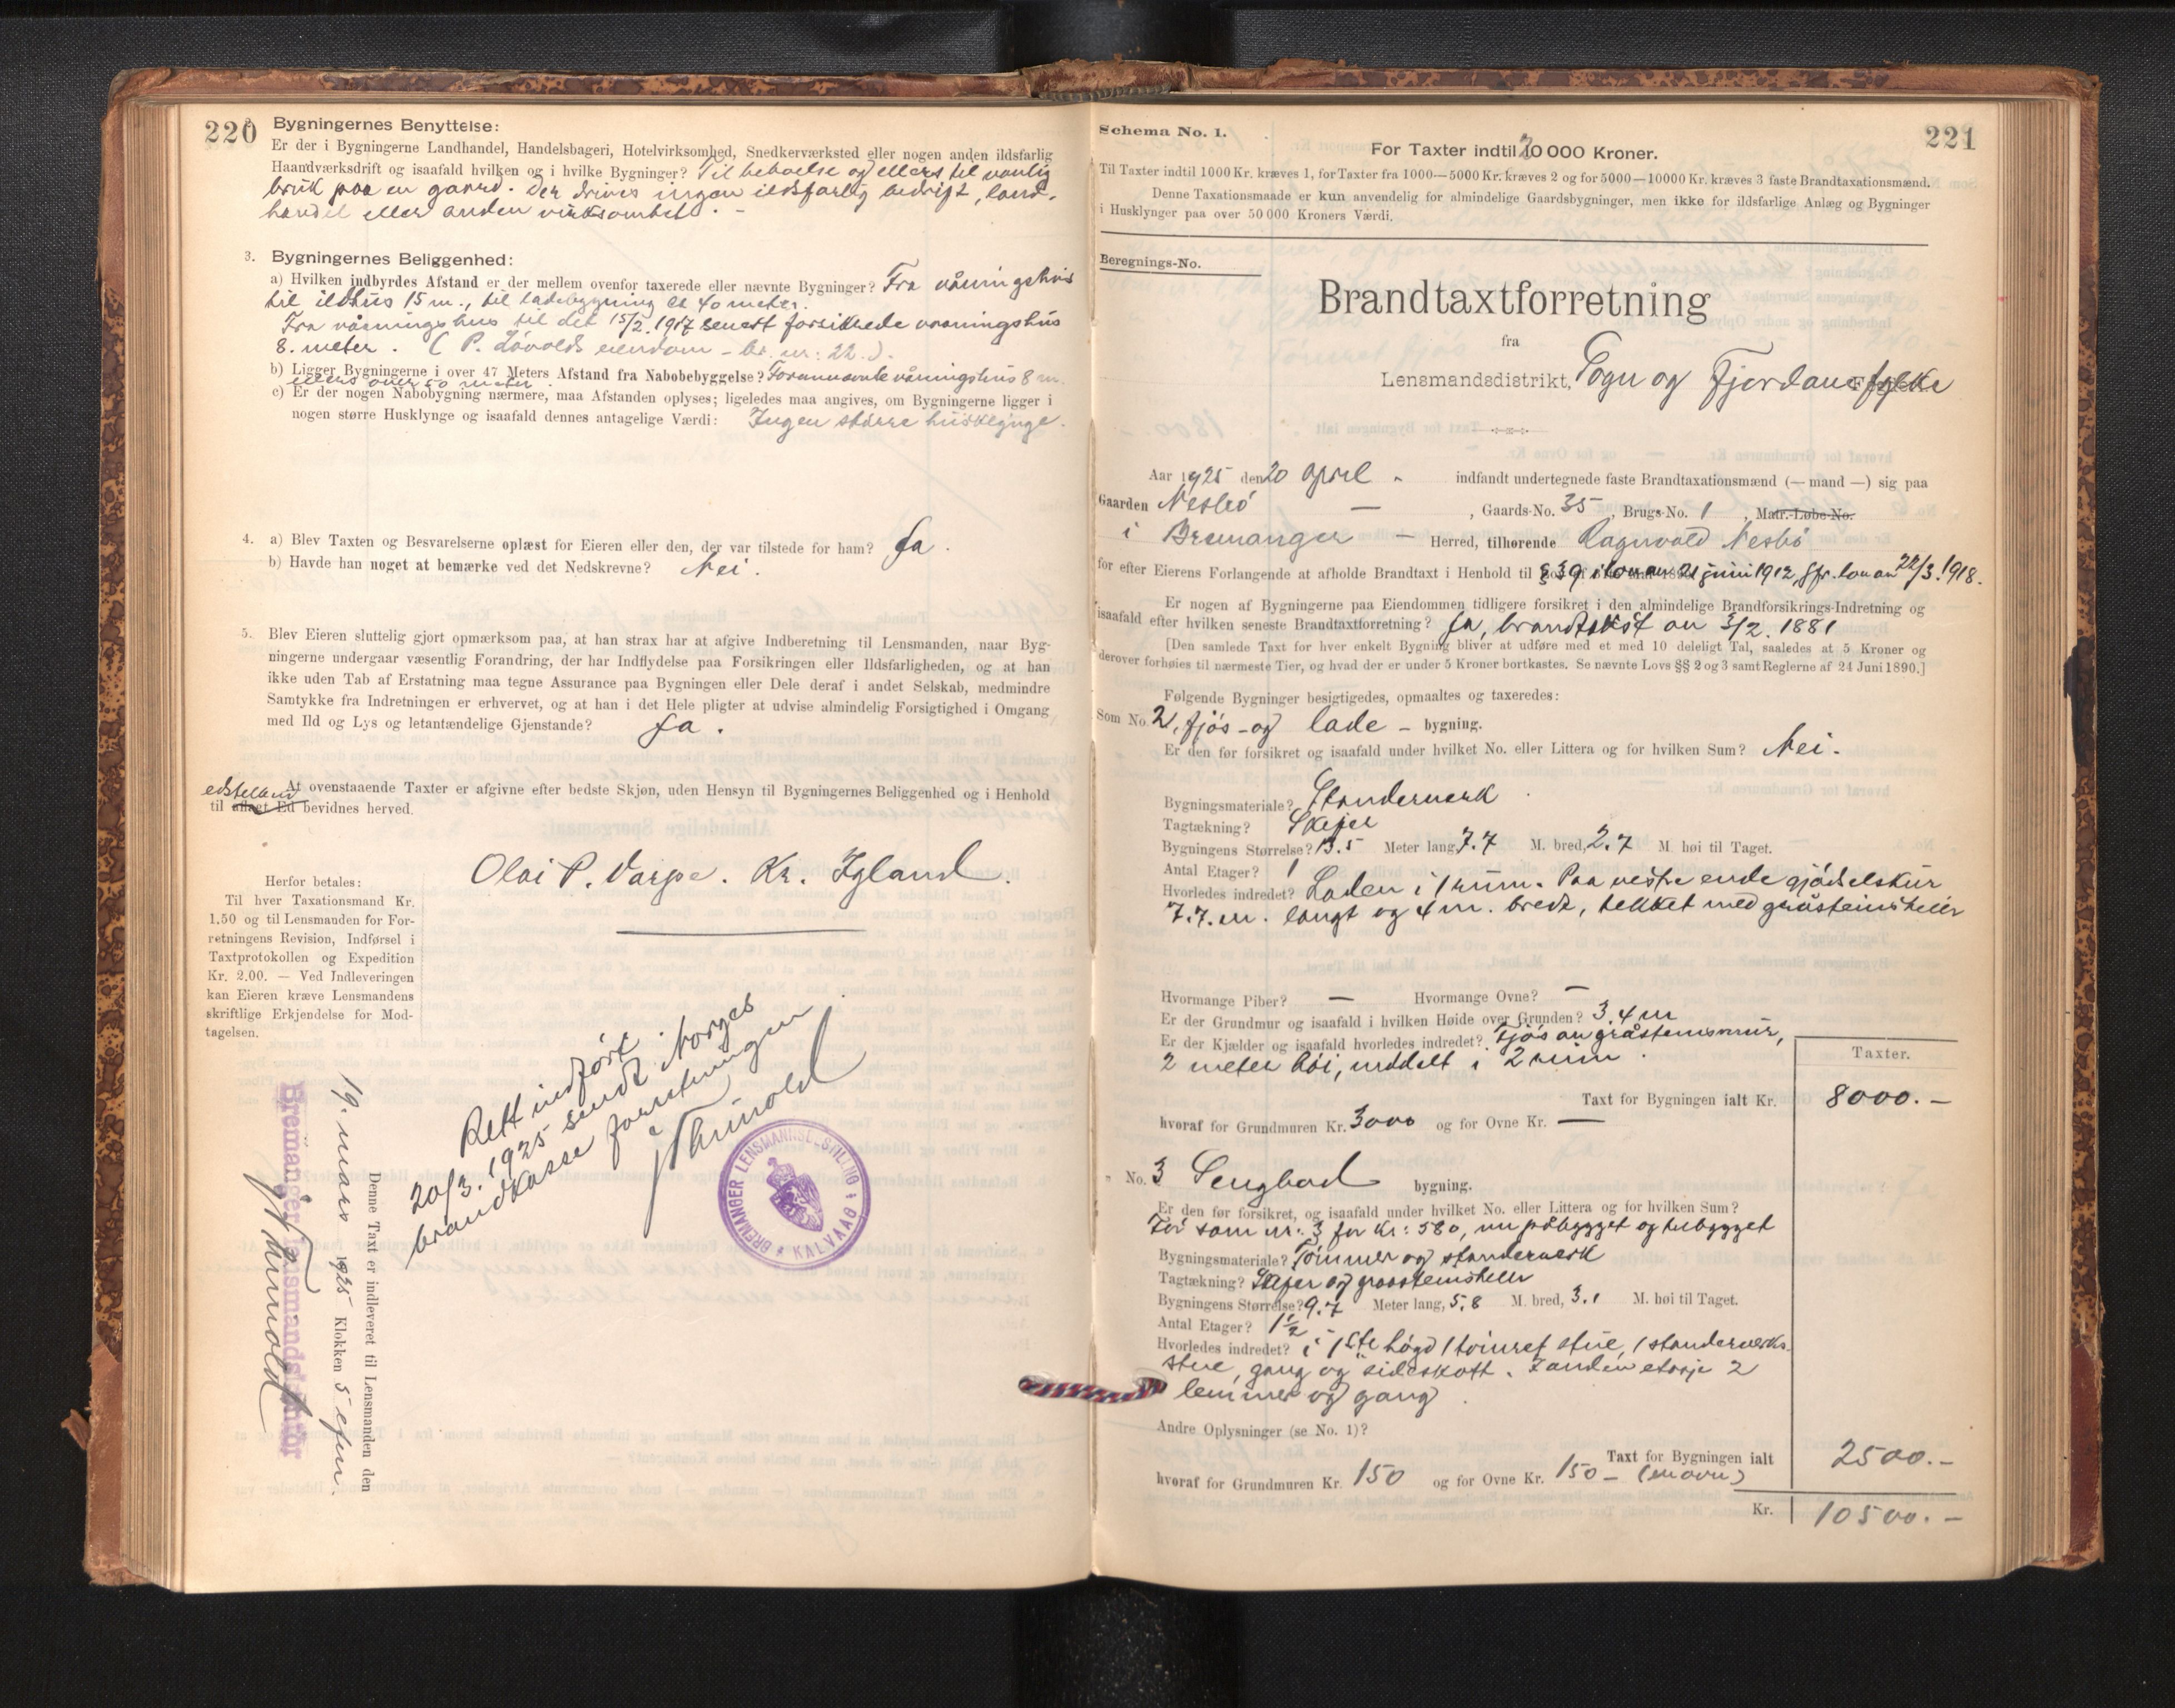 220
2. Bygningernes Benyttelse:
Er der i Bygningerne Landhandel, Handelsbageri, Hotelvirksomhed, Snedkerværksted eller nogen anden ildsfarlig
Haandværksdrift og isaafald hvilken og i hvilke Bygninger? Til beboelse og ellers til vanlig
bruk paa en gaard. Der drives ingen ildsfarlig bedrift, land-
handel eller anden virksomhet. -
3. Bygningernes Beliggenhed:
a) Hvilken indbyrdes Afstand er der mellem ovenfor taxerede eller nævnte Bygninger? Fra våningshus
til ildhus 15 m., til ladebygning 40 meter.
Fra våningshus til det 15/2. 1917 senest forsikrede vaaningshus
8. meter. (P. Løvolds eiendom - br. nr: 22.).
b) Ligger Bygningerne i over 47 Meters Afstand fra Nabobebyggelse? Forannævnte våningshus 8 m.
ellers over 50 meter.
c) Er der nogen Nabobygning nærmere, maa Afstanden oplyses; ligeledes maa angives, om Bygningerne ligger i
nogen større Husklynge og isaafald dennes antagelige Værdi: Ingen større husklynge.
4. a) Blev Taxten og Besvarelserne oplæst for Eieren eller den, der var tilstede for ham? Ja.
b) Havde han noget at bemærke ved det Nedskrevne? Nei.
5. Blev Eieren sluttelig gjort opmærksom paa, at han strax har at afgive Indberetning til Lensmanden, naar Byg-
ningerne undergaar væsentlig Forandring, der har Indflydelse paa Forsikringen eller Ildsfarligheden, og at han
ikke uden Tab af Erstatning maa tegne Assurance paa Bygningen eller Dele deraf i andet Selskab, medmindre
Samtykke fra Indretningen er erhvervet, og at han i det Hele pligter at udvise almindelig Forsigtighed i Omgang
med Ild og Lys og letantændelige Gjenstande? Ja.
At ovenstaaende Taxter er afgivne efter bedste Skjøn, uden Hensyn til Bygningernes Beliggenhed og i Henhold
til aflagt Ed bevidnes herved.
Olai P. Varpe. Kr. Igland.
Herfor betales:
Til hver Taxationsmand Kr.
1,50 og til Lensmanden for For-
retningens Revision, Indførsel i
Taxtprotokollen og Expedition
Kr. 2.00. — Ved Indleveringen
kan Eieren kræve Lensmandens
skriftlige Erkjendelse for Mod-
tagelsen.
Rett indført
20/3. 1925 sendt Norges
brandkasse forretningen
BREMANGER LENSMANNSBESTILLING * KALVAAG *
Denne Taxt er indleveret til Lensmanden den
19. mars 1925 Klokken 5 efm.
Bremanger lensmandskontor
221
Schema No. 1.
For Taxter indtil 20 000 Kroner.
Til Taxter indtil 1000 Kr. kræves 1, for Taxter fra 1000—5000 Kr. kræves 2 og for 5000—10000 Kr. kræves 3 faste Brandtaxationsmænd.
Denne Taxationsmaade er kun anvendelig for almindelige Gaardsbygninger, men ikke for ildsfarlige Anlæg og Bygninger
i Husklynger paa over 50 000 Kroners Værdi.
Beregnings-No.
Brandtaxtforretning
fra
Lensmandsdistrikt, Sogn og Fjordane fylke
Aar 1925 den 20 april - indfandt undertegnede faste Brandtaxationsmænd (— mand —) sig paa
Gaarden Nesbö — , Gaards-No. 35, Brugs-No. 1, Matr.-Løbe-No.
i Bremanger — Herred, tilhørende Ragnvald Nesbö
for efter Eierens Forlangende at afholde Brandtaxt i Henhold til § 39 i lov av 21 juni 1912, jfr. lov av 22/3. 1918.
Er nogen af Bygningerne paa Eiendommen tidligere forsikret i den almindelige Brandforsikrings-Indretning og
isaafald efter hvilken seneste Brandtaxtforretning? Ja, brandtakst av 3/2. 1881
[Den samlede Taxt for hver enkelt Bygning bliver at udføre med et med 10 deleligt Tal, saaledes at 5 Kroner og
derover forhøies til nærmeste Tier, og hvad der er under 5 Kroner bortkastes. Se nævnte Lovs §§ 2 og 3 samt Reglerne af 24 Juni 1890.]
Følgende Bygninger besigtigedes, opmaaltes og taxeredes:
Som No. 2, fjös- og lade - bygning.
Er den før forsikret og isaafald under hvilket No. eller Littera og for hvilken Sum? Nei.
Bygningsmateriale? Standerverk
Tagtækning? Skifer
Bygningens Størrelse? 13.5 Meter lang, 7.7 M. bred, 2.7 M. høi til Taget.
Antal Etager? 1
Hvorledes indredet? Laden i 1 rum. Paa vestre ende gjødselskur
7.7. m. langt og 4 m. bredt, tekket med gråsteinsheller
Hvormange Piber? — Hvormange Ovne? —
Er der Grundmur og isaafald i hvilken Høide over Grunden? 3.4 m
Er der Kjælder og isaafald hvorledes indredet? Fjös av gråsteinsmur,
2 meter höi, inddelt i 2 rum.
Taxter.
Taxt for Bygningen ialt Kr. 8000.-
hvoraf for Grundmuren Kr. 3000 og for Ovne Kr. —
" No. 3 Sengbod bygning.
Er den før forsikret, og isaafald under hvilket No. eller Littera og for hvilken Sum?
För som nr: 3 for kr: 580, nu påbygget og tilbygget
Bygningsmateriale? Tömmer og standerverk
Tagtækning? Skifer og graasteinsheller
Bygningens Størrelse? 9.7 Meter lang, 5.8 M. bred, 3.1 M. høi til Taget.
Antal Etager? 1½
Hvorledes indredet? i 1ste høgd 1 tömret stue, 1 standerverks-
stue, gang og sideskott. I anden etasje 2
lemmer og gang.
Andre Oplysninger (se No. 1)?
Taxt for Bygningen ialt 2500.-
hvoraf for Grundmuren Kr. 150 og for Ovne Kr. 150 - (en ovn)
Kr. 10500.-